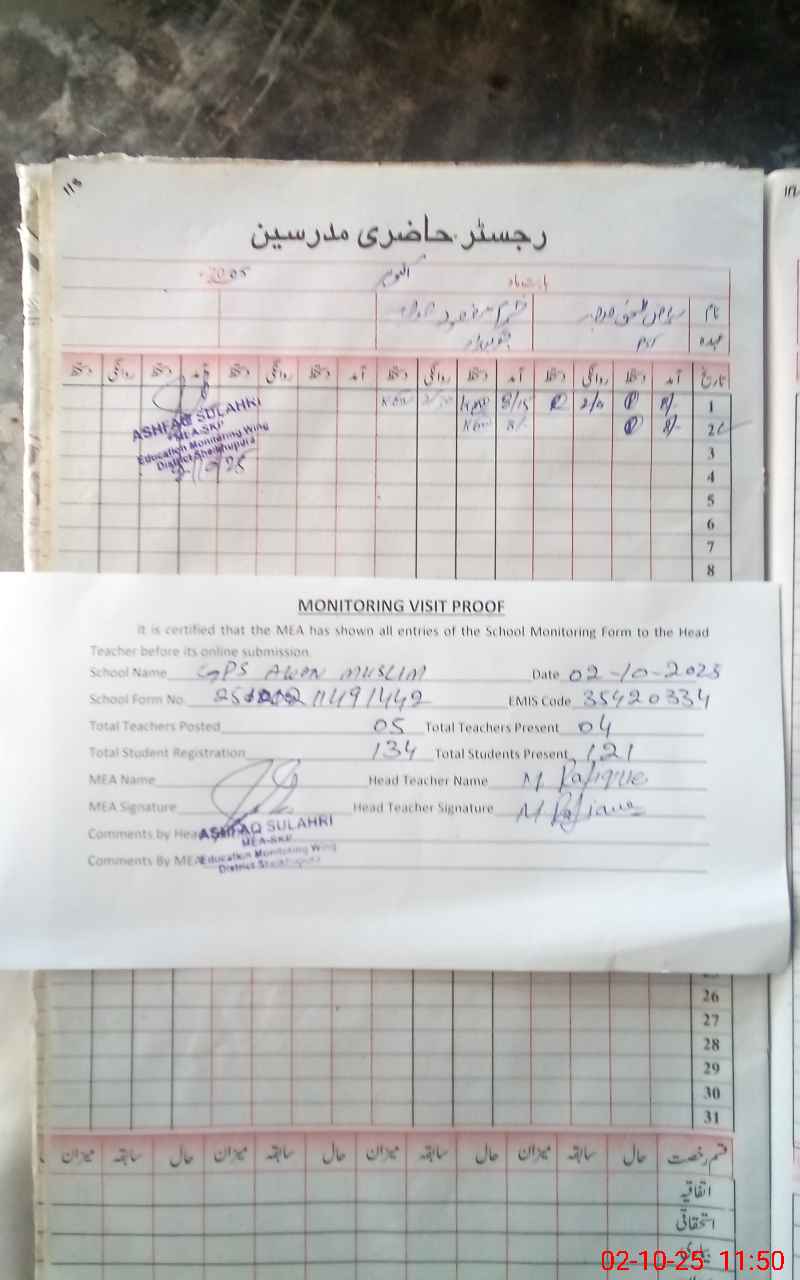 118
رجسٹر حاضری مدرسین
اکتوبر
نام
عہدہ PST
تاریخ آمد دستخط روانگی دستخط آمد دستخط روانگی دستخط آمد دستخط روانگی دستخط آمد دستخط روانگی دستخط
1 8/-
2 8/- 8/-
3
4
5
6
7
8
ASHFAQ SULAHRI
MEA-SKP
Education Monitoring Wing
District Sheikhupura
MONITORING VISIT PROOF
It is certified that the MEA has shown all entries of the School Monitoring Form to the Head
Teacher before its online submission.
School Name GPS AWAN MUSLIM Date 02-10-2025
School Form No. EMIS Code 35420334
Total Teachers Posted 05 Total Teachers Present 04
Total Student Registration 134 Total Students Present 121
MEA Name Head Teacher Name M Rafique
MEA Signature Head Teacher Signature M Rafique
Comments by Hea
ASHFAQ SULAHRI
MEA-SKP
Comments By MEA
Education Monitoring Wing
District Sheikhupura
25
26
27
28
29
30
31
قسم رخصت حال سابقہ میزان حال سابقہ میزان حال سابقہ میزان حال سابقہ میزان
اتفاقیہ
استحقاقی
بیماری
02-10-25 11:50